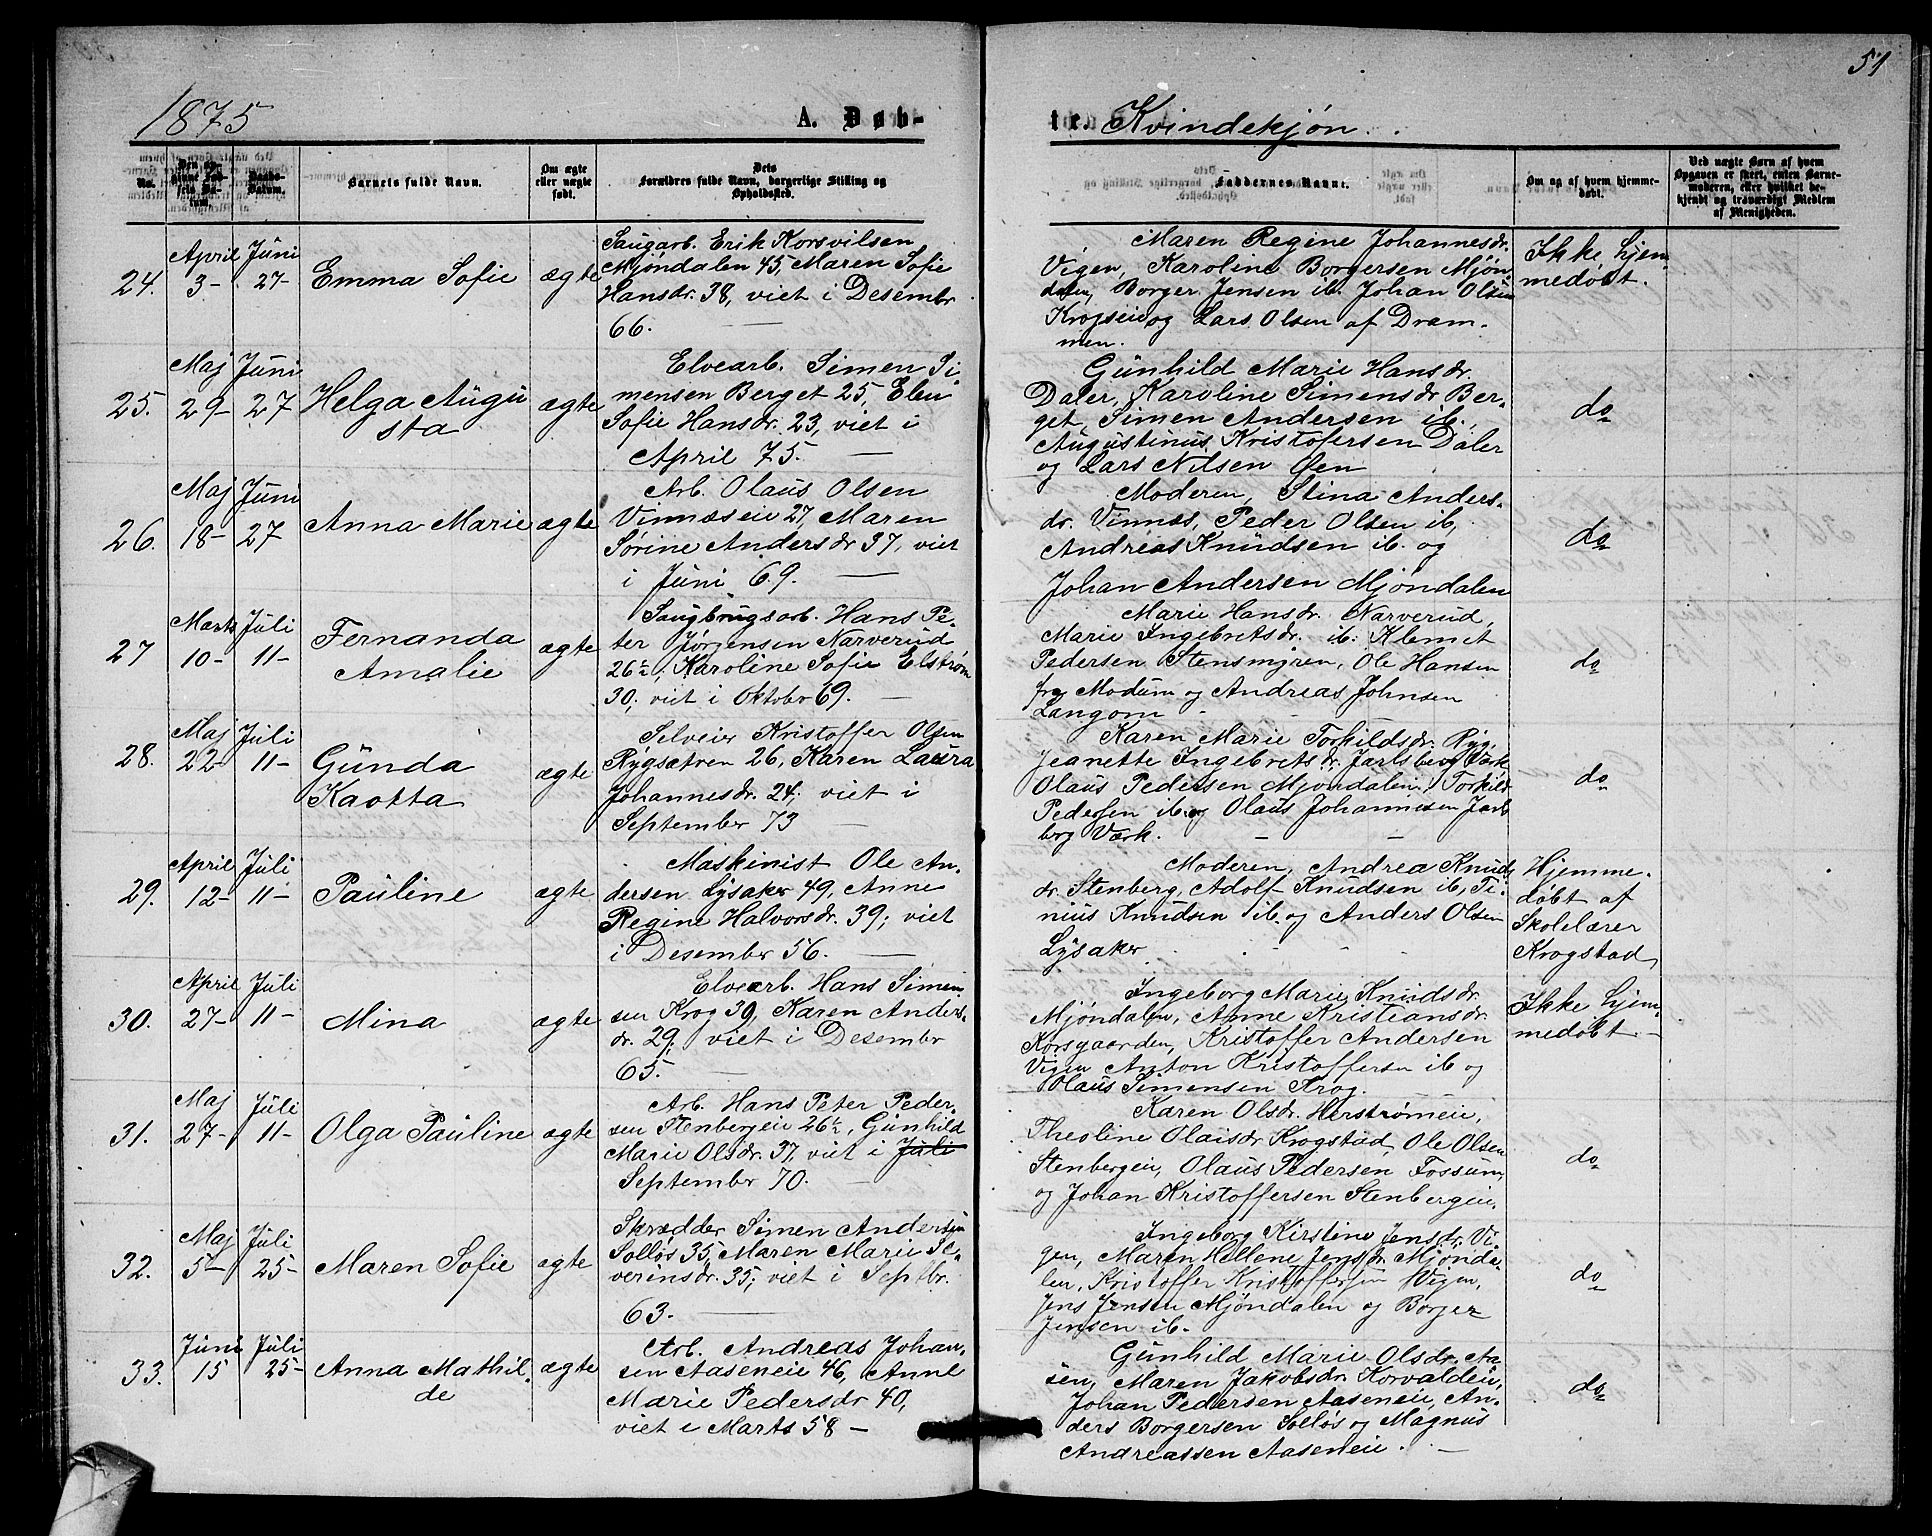 51
1875
A. Døb-
te. Kvindekjøn.
No.
Den opgivne Fødsels Datum.
Daabs-Datum.
Barnets fulde Navn.
Om ægte eller uægte født.
Dets Forældres fulde Navn, borgerlige Stilling og Opholdssted.
Faddernes Navne.
Om og af hvem hjemmedøbt.
Ved uægte Børn af hvem Opgaven er skeet, enten Barnemoderen, eller hvilket bekjendt og troværdigt Medlem af Menigheden.
24. April 3- Juni 27- Emma Sofie ægte
Saugarb. Erik Korsvilsen
Mjøndalen 45, Maren Sofie
Hansdr. 38, viet i Desembr
66.
Maren Regine Johannesdr.
Vigen, Karoline Borgersen Mjøn
dalen, Borger Jensen ib. Johan Olsen
Krogseie og Lars Olsen af Dram-
men.
Ikke hjem-
medøbt.
25. Maj 29- Juni 27 Helga Augu
sta
ægte
Elvearb. Simen Si-
mensen Berget 25, Elen
Sofie Hansdr. 23, viet i
April 75.
Gunhild Marie Hansdr.
Daler, Karoline Simensdr Ber-
get, Simen Andersen ib.,
Augustinus Kristofersen Daler
og Lars Nilsen Øen
do
26. Maj 18- Juni 27 Anna Marie ægte
Arb. Olaus Olsen
Vinnæseie 27, Maren
Sørine Andersdr 37, viet
i Juni 69.
Moderen, Stina Anders-
dr. Vinnæs, Peder Olsen ib,
Andreas Knudsen ib. og
Johan Andersen Mjøndalen
do
27 Marts 10- Juli 11- Fernanda
Amalie
ægte
Saugbrugsarb. Hans Pe-
ter Jørgensen Narverud
26½, Karoline Sofie Elstrøm
30, viet i Oktobr 69.
Marie Hansdr. Narverud,
Marie Ingebretsdr. ib. Klemet
Pedersen Stensmyren, Ole Hansen
fra Modum og Andreas Johnsen
Langom
do
28. Maj 22- Juli 11- Gunda
Kaotta
ægte
Selveier Kristoffer Olsen
Rygsætren 26, Karen Laura
Johannesdr. 24; viet i
September 73
Karen Marie Torkildsdr. Ryg,
Jeanette Ingebretsdr. Jarlsberg Værk
Olaus Pedersen Mjøndalen, Torkild
Pedersen ib. og Olaus Johannesen Jarls
berg Værk.
do
29. April 12- Juli 11- Pauline ægte
Maskinist Ole An-
dersen Lysaker 49, Anne
Regine Halvorsdr. 39; viet
i Desember 56.
Moderen, Andrea Knuds
dr. Stenberg, Adolf Knudsen ib, Ti-
nius Knudsen ib. og Anders Olsen
Lysaker
Hjemme-
døbt af
Skolelærer
Krogstad
30. April 27- Juli 11- Mina ægte
Elvearb. Hans Simen
sen Krog 39, Karen Anders-
dr. 29, viet i Desembr
65,
Ingeborg Marie Knudsdr.
Mjøndalen, Anne Kristiansdr
Korsgaarden, Kristoffer Andersen
Vigen Anton Kristoffersen ib og
Olaus Simensen Krog.
Ikke hjem-
medøbt
31. Maj 27- Juli 11- Olga Pauline ægte
Arb. Hans Peter Peder-
sen Stenbergeie 26½, Gunhild
Marie Olsdr. 37, viet i Juli
September 70.
Karen Olsdr. Herstrømeie,
Theoline Olaisdr Krogstad, Ole Olsen
Stenbergeie, Olaus Pedersen Fossum,
og Johan Kristoffersen Stenbergeie.
do
32. Maj 5- Juli 25- Maren Sofie ægte
Skrædder Simen Andersen
Solløs 35, Maren Marie Se-
verinsdr. 35; viet i Septbr.
63.
Ingeborg Kirstine Jensdr. Vi-
gen, Maren Hellene Jensdr. Mjønda-
len, Kristoffer Kristoffersen Vigen,
Jens Jensen Mjøndalen og Borger
Jensen ib.
do
33. Juni 15 Juli 25- Anna Mathil-
de
ægte
Arb. Andreas Johan-
sen Aaseneie 46, Anne
Marie Pedersdr 40,
viet i Marts 58 -
Gunhild Marie Olsdr. Aa-
sen, Maren Jakobsdr. Korvaldeie,
Johan Pedersen Aaseneie, An-
ders Borgersen Solløs og Magnus
Andreassen Aaseneie.
do